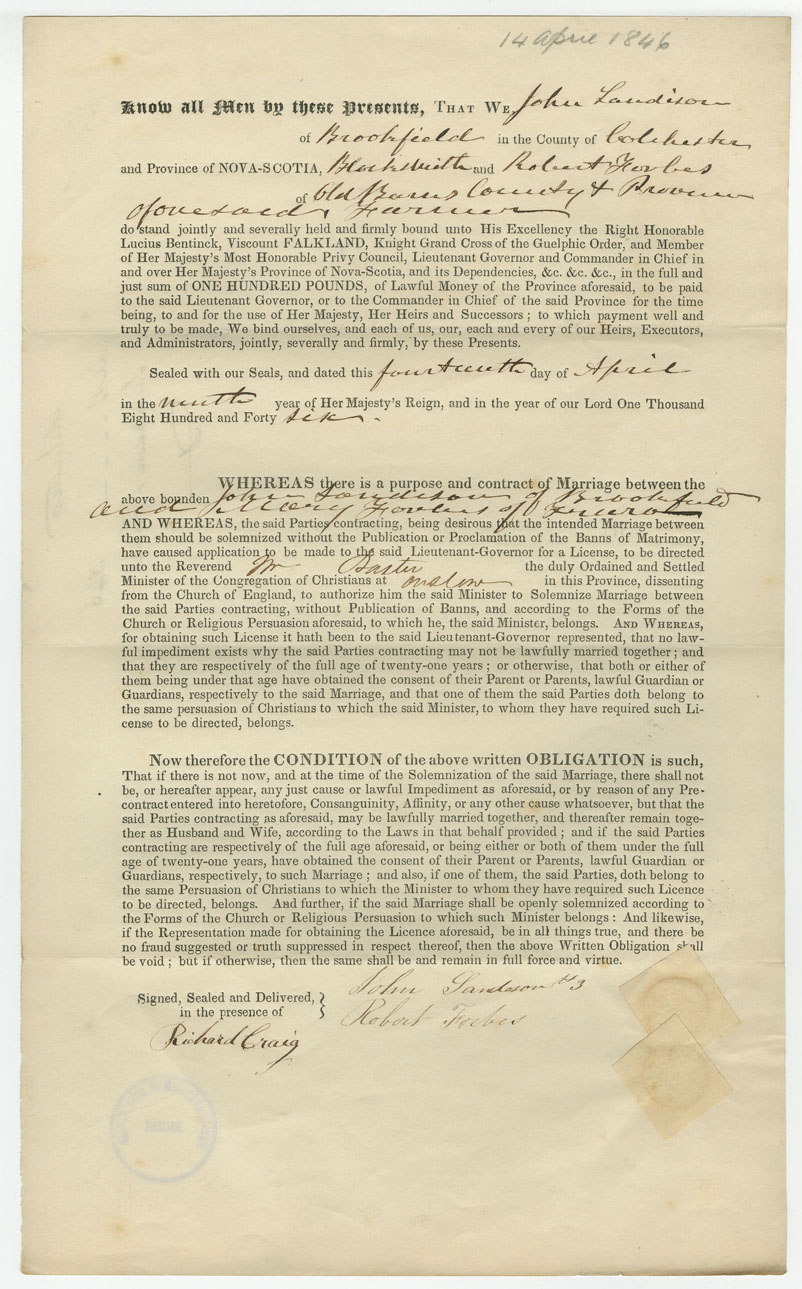 14 April 1846
Know all Men by these Presents, THAT WE, John Sandison
of Brookfield in the County of Colchester
and Province of NOVA-SCOTIA, Blacksmith and Robert Forbes
of Old Barns County & Province
aforesaid, Farmer
do stand jointly and severally held and firmly bound unto His Excellency the Right Honorable
Lucius Bentinck, Viscount FALKLAND, Knight Grand Cross of the Guelphic Order, and Member
of Her Majesty's Most Honorable Privy Council, Lieutenant Governor and Commander in Chief in
and over Her Majesty's Province of Nova-Scotia, and its Dependencies, &c. &c. &c., in the full and
just sum of ONE HUNDRED POUNDS, of Lawful Money of the Province aforesaid, to be paid
to the said Lieutenant Governor, or to the Commander in Chief of the said Province for the time
being, to and for the use of Her Majesty, Her Heirs and Successors ; to which payment well and
truly to be made, We bind ourselves, and each of us, our, each and every of our Heirs, Executors,
and Administrators, jointly, severally and firmly, by these Presents.
Sealed with our Seals, and dated this fourteenth day of April
in the ninth year of Her Majesty's Reign, and in the year of our Lord One Thousand
Eight Hundred and Forty six.
WHEREAS there is a purpose and contract of Marriage between the
above bounden John Sandison of Brookfield
and Mary Forbes of Truro
AND WHEREAS, the said Parties contracting, being desirous that the intended Marriage between
them should be solemnized without the Publication or Proclamation of the Banns of Matrimony,
have caused application to be made to the said Lieutenant-Governor for a License, to be directed
unto the Reverend Mr Baxter the duly Ordained and Settled
Minister of the Congregation of Christians at Onslow in this Province, dissenting
from the Church of England, to authorize him the said Minister to Solemnize Marriage between
the said Parties contracting, without Publication of Banns, and according to the Forms of the
Church or Religious Persuasion aforesaid, to which he, the said Minister, belongs. AND WHEREAS,
for obtaining such License it hath been to the said Lieutenant-Governor represented, that no law-
ful impediment exists why the said Parties contracting may not be lawfully married together ; and
that they are respectively of the full age of twenty-one years ; or otherwise, that both or either of
them being under that age have obtained the consent of their Parent or Parents, lawful Guardian or
Guardians, respectively to the said Marriage, and that one of them the said Parties doth belong to
the same persuasion of Christians to which the said Minister, to whom they have required such Li-
cense to be directed, belongs.
Now therefore the CONDITION of the above written OBLIGATION is such,
That if there is not now, and at the time of the Solemnization of the said Marriage, there shall not
be, or hereafter appear, any just cause or lawful Impediment as aforesaid, or by reason of any Pre-
contract entered into heretofore, Consanguinity, Affinity, or any other cause whatsoever, but that the
said Parties contracting as aforesaid, may be lawfully married together, and thereafter remain toge-
ther as Husband and Wife, according to the Laws in that behalf provided ; and if the said Parties
contracting are respectively of the full age aforesaid, or being either or both of them under the full
age of twenty-one years, have obtained the consent of their Parent or Parents, lawful Guardian or
Guardians, respectively, to such Marriage ; and also, if one of them, the said Parties, doth belong to
the same Persuasion of Christians to which the Minister to whom they have required such Licence
to be directed, belongs. And further, if the said Marriage shall be openly solemnized according to
the Forms of the Church or Religious Persuasion to which such Minister belongs : And likewise,
if the Representation made for obtaining the Licence aforesaid, be in all things true, and there be
no fraud suggested or truth suppressed in respect thereof, then the above Written Obligation shall
be void ; but if otherwise, then the same shall be and remain in full force and virtue.
John Sandeson
Signed, Sealed and Delivered,
in the presence of
Robert Forbes
Richard Craig